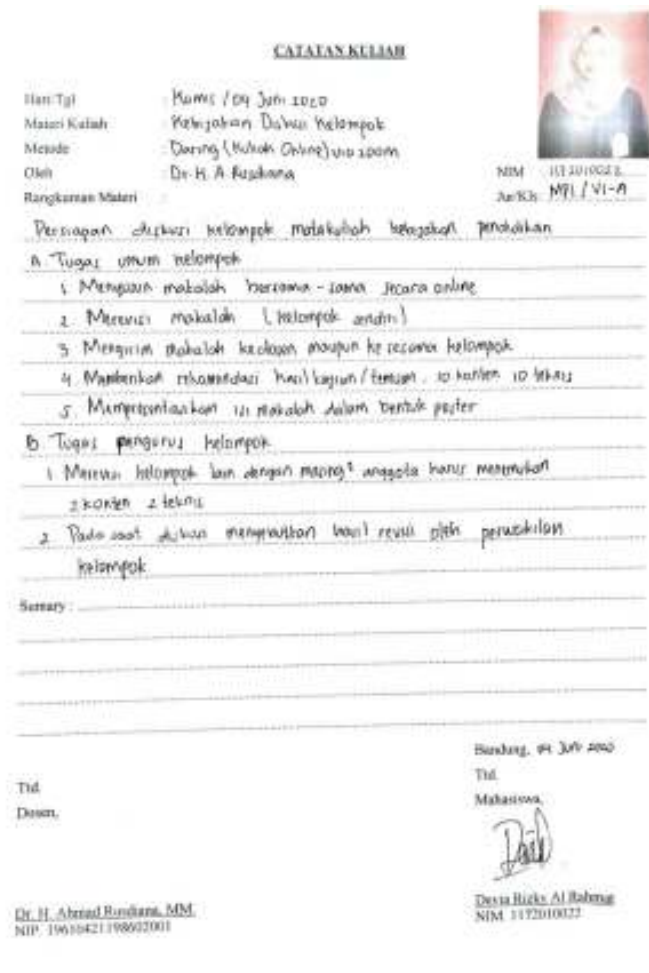 CATATAN KULIAH
Hari/Tgl : Kamis / 04 Juni 2020
Materi Kuliah : Kebijakan Diskusi Kelompok
Metode : Daring (Kuliah Online) via zoom
Oleh : Dr. H. A Rusdiana
NIM : 1172010022
Rangkuman Materi :
Jur/Kls : MPI / VI-A
Persiapan diskusi kelompok matakuliah kebijakan pendidikan
A. Tugas umum kelompok
1. Menyusun makalah bersama-sama secara online
2. Merevisi makalah (kelompok sendiri)
3. Mengirim makalah kedosen maupun ke sesama kelompok
4. Memberikan rekomendasi hasil kajian/temuan. 10 konten 10 teknis
5. Mempresentasikan isi makalah dalam bentuk poster
B. Tugas pengurus kelompok
1. Merevisi kelompok lain dengan masing² anggota harus menemukan
2 konten 2 teknis
2. Pada saat diskusi menyebutkan hasil revisi oleh perwakilan
kelompok
Semary :
Bandung, 04 Juni 2020
Ttd.
Ttd.
Mahasiswa,
Dosen,
Dr. H. Ahmad Rusdiana, MM.
NIP.
Devia Rizky Al Rahma
NIM. 1172010022